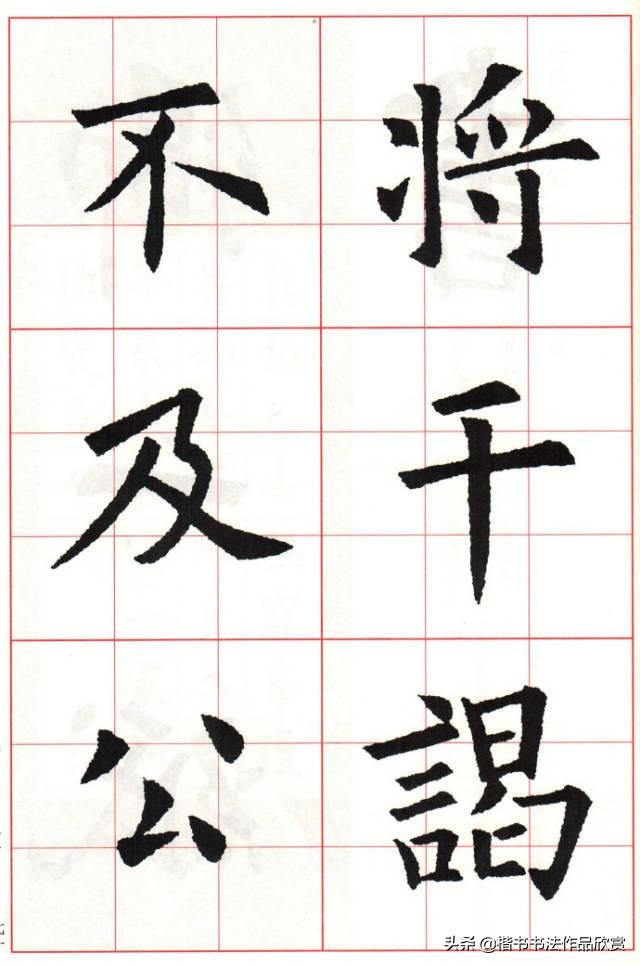 将干謁
不及公
头条 @楷书书法作品欣赏